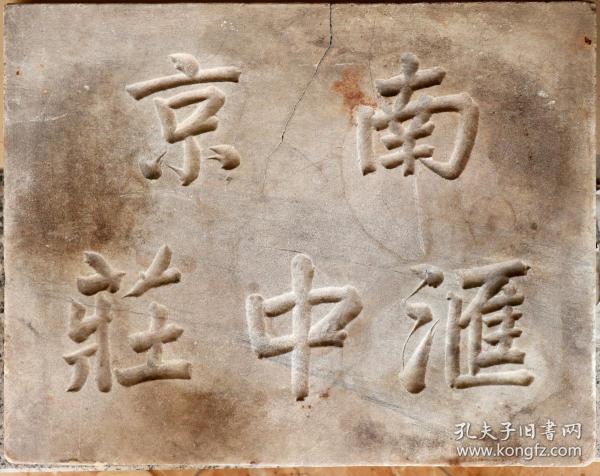 南京
滙中莊
孔夫子旧書网
www.kongfz.com